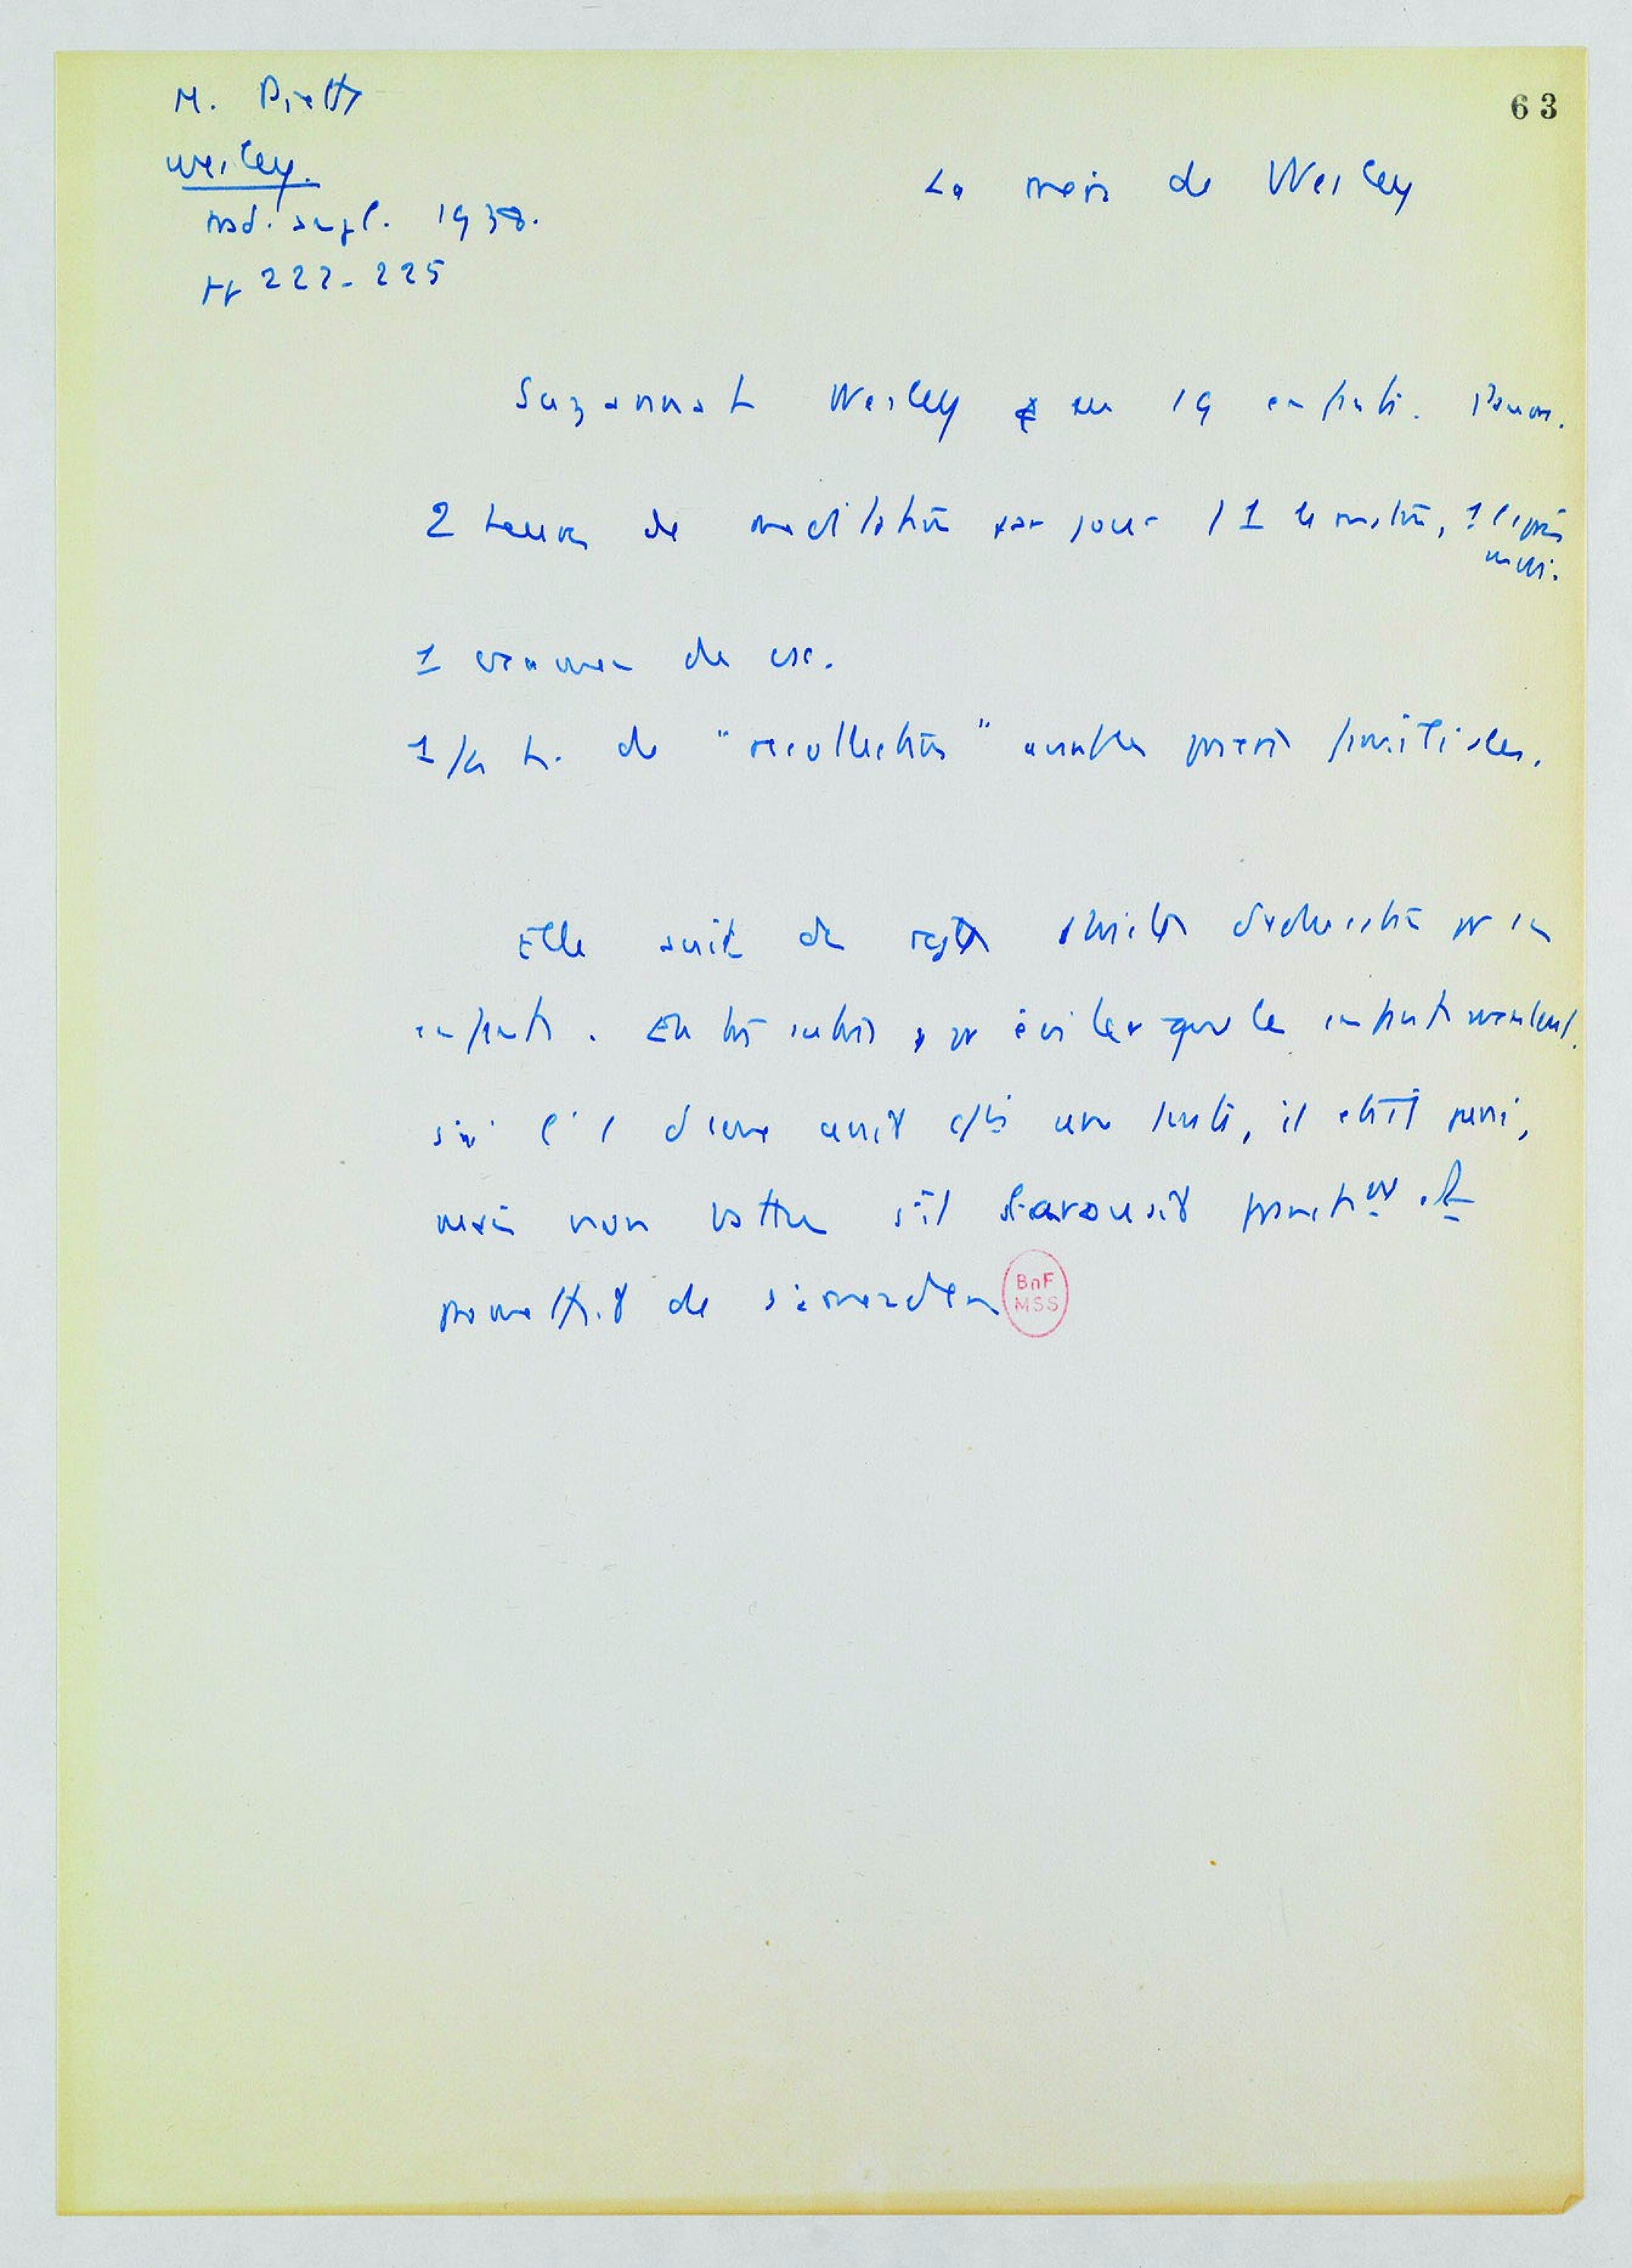 M. Piette
Wesley.
trad. angl. 1938.
pp 222-225
63
La mère de Wesley
Suzannah Wesley eu 19 enfants.
2 heures de meditation par jour / 1 le matin, 1 l'après
midi.
1 examen de csc.
1/4 h. de "recollection" avant les prières familiales.
Elle suit de règles strictes d'éducation pr ses
enfants. pr éviter que les enfants mentent
si l' d'eux avait une faute, il était puni,
mais non battu s'il avouait franchement et
promettait de s'amender
BnF
MSS